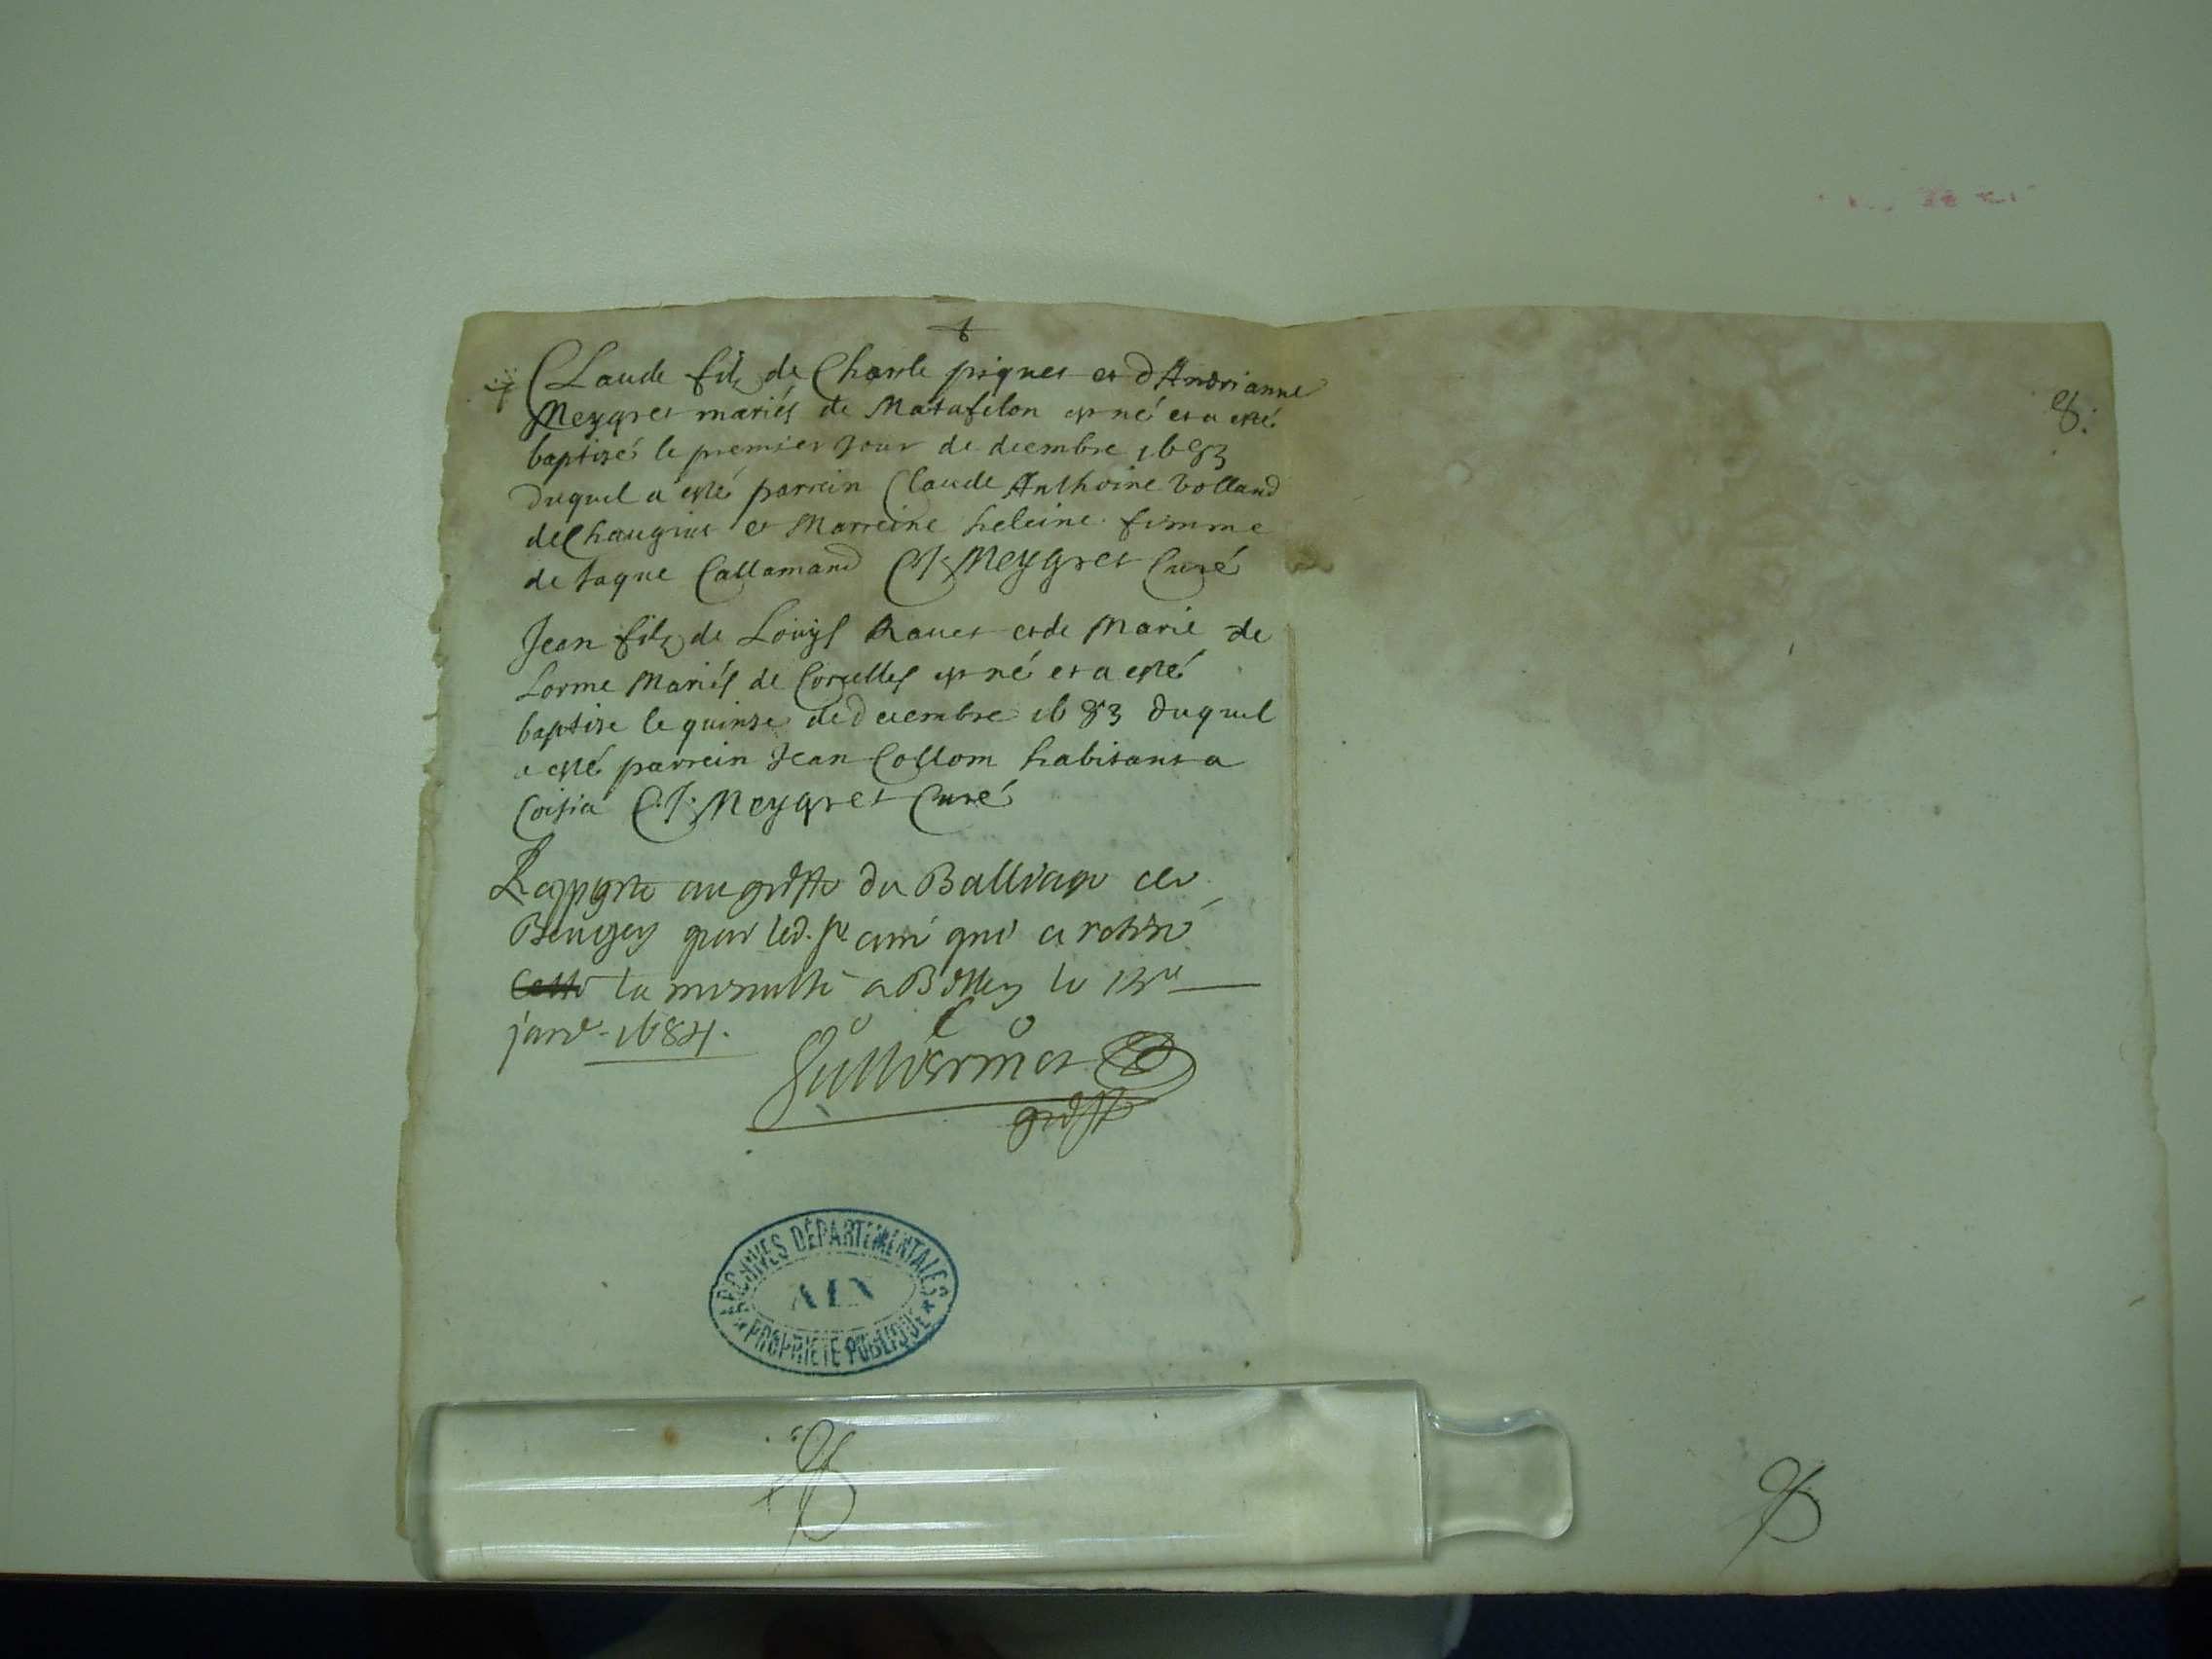 Claude filz de Charle piquet et dAndrianne
Meygret mariés de Matafelon est né et a esté
baptizé le premier Jour de decembre 1683
duquel a esté parrein Claude Anthoine volland
de et Marreine heleine femme
de Jaque Callamand C.J. Meygret Curé
Jean filz de Louys Ravet et de Marie de
Lorme Mariés de Corcelles est né et a esté
baptise le quinze de decembre 1683 duquel
a esté parrein Jean Collom habitant a
Coisia C.J. Meygret Curé
Rapporté au greffe du Balliage de
Beugey par led. sr curé qui a retiré
la minutte a Belley le 13e
janv. 1684.
Guilliermet
greff
8.
ARCHIVES DÉPARTEMENTALES
AIN
PROPRIÉTÉ PUBLIQUE